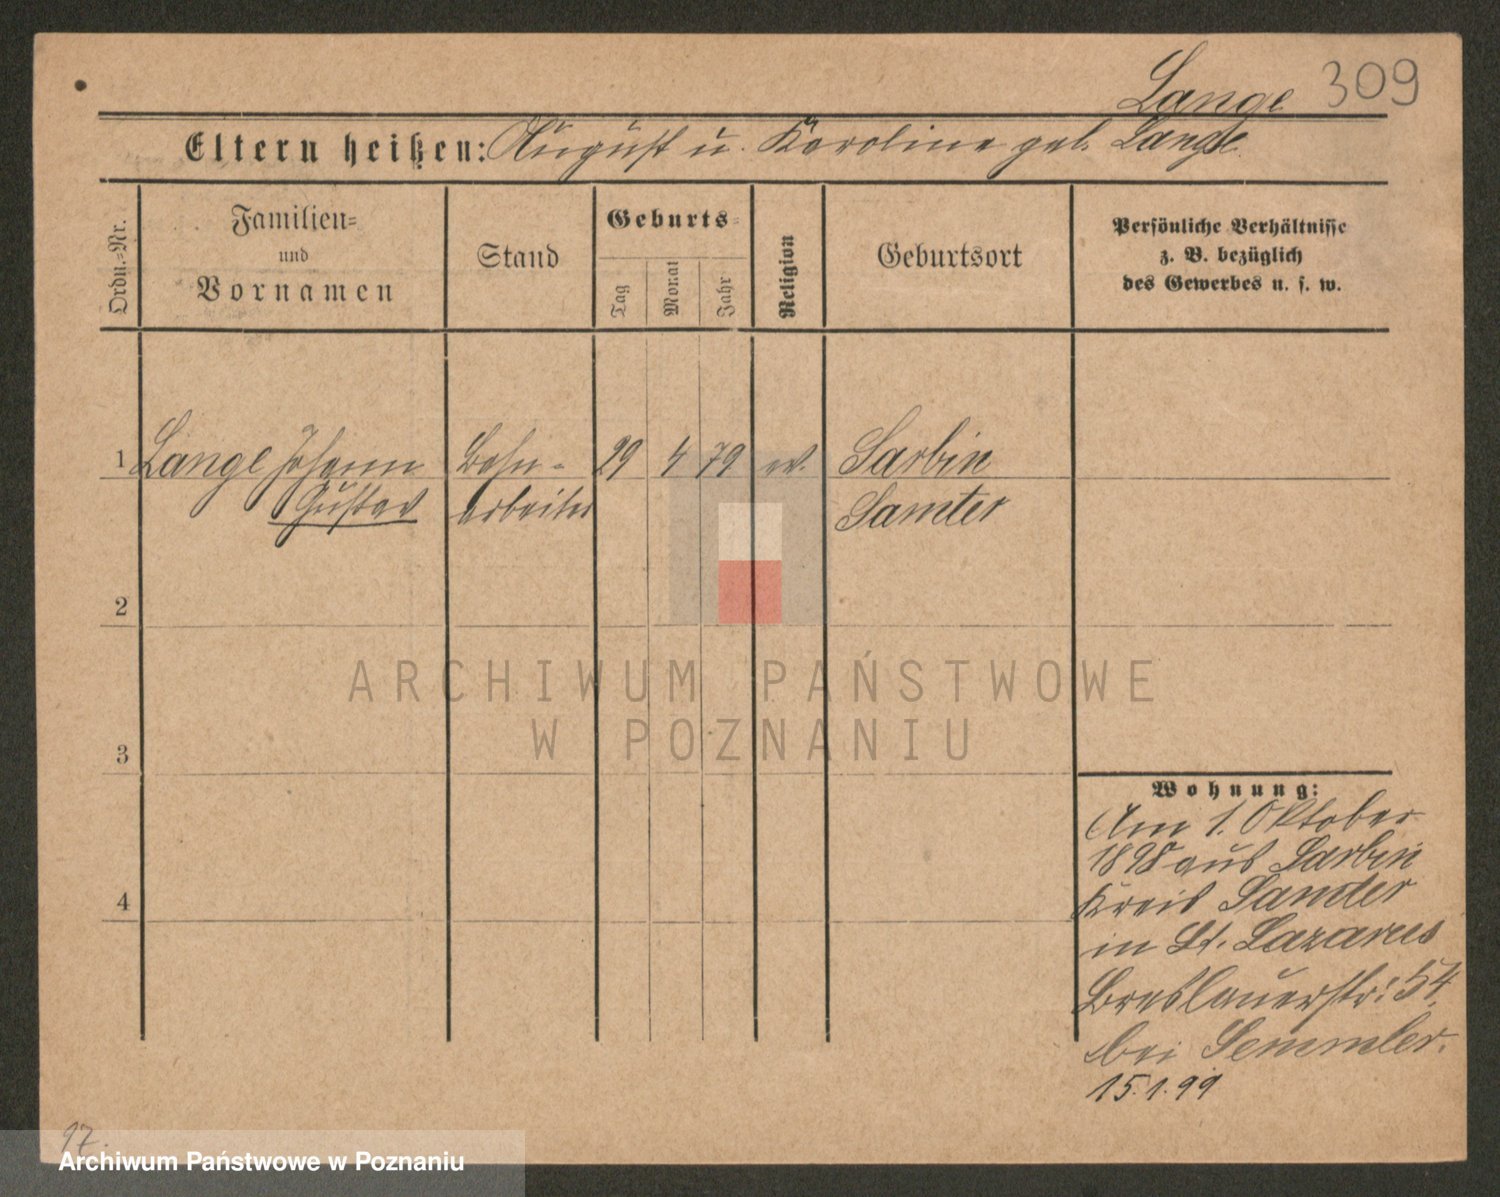 Lange 309
Eltern heißen: August u. Karoline geb. Lange.
Ordn.-Nr.
Familien-
und
Vornamen
Stand
Geburts-
Tag
Monat
Jahr
Religion
Geburtsort
Persönliche Verhältnisse
z. B. bezüglich
des Gewerbes u. s. w.
1 Lange Johann Bahn- 29 4 79 ev. Sarbin
Gustav arbeiter Samter
2
3
4
ARCHIWUM PAŃSTWOWE
W POZNANIU
Wohnung:
Am 1. Oktober
1898 aus Sarbin
Kreis Samter
in St. Lazarus
Breslauerstr. 54.
bei Semmler.
15.1.99
17.
Archiwum Państwowe w Poznaniu